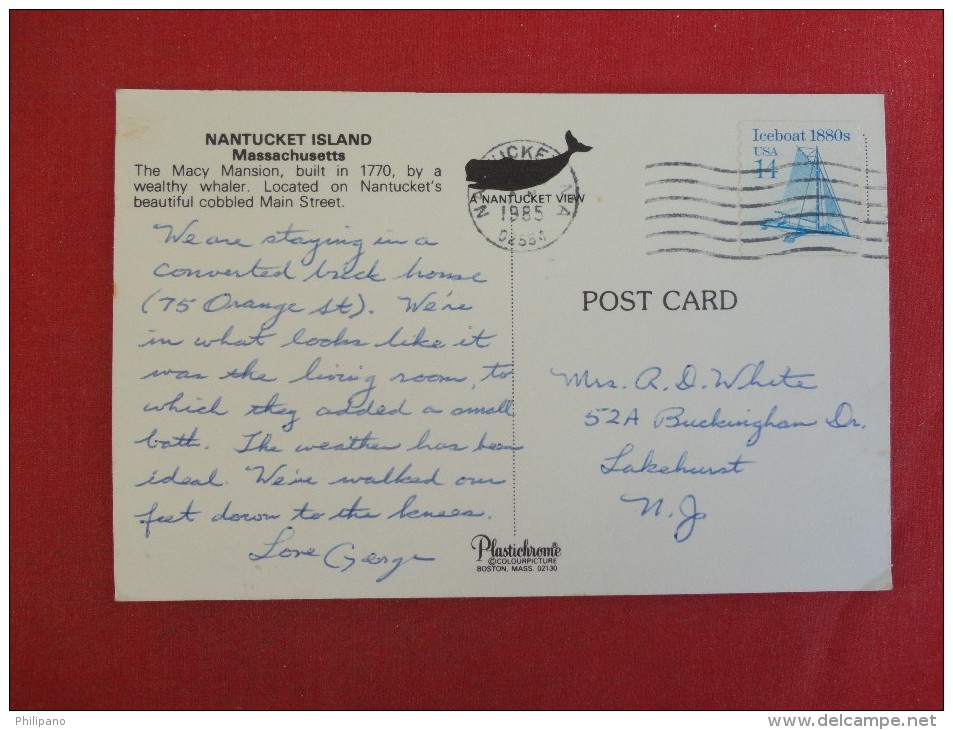 NANTUCKET ISLAND
Massachusetts
The Macy Mansion, built in 1770, by a
wealthy whaler. Located on Nantucket's
beautiful cobbled Main Street.
We are staying in a
converted brick house
(75 Orange St). We're
in what looks like it
was the living room, to
which they added a small
bath. The weather has been
ideal. We've walked our
feet down to the knees.
Love George
A NANTUCKET VIEW
1985
02554
Iceboat 1880s
USA
14
POST CARD
Mrs. R. D. White
52A Buckingham Dr.
Lakehurst
N.J
Plastichrome®
©COLOURPICTURE
BOSTON, MASS. 02130
Philipano
www.delcampe.net